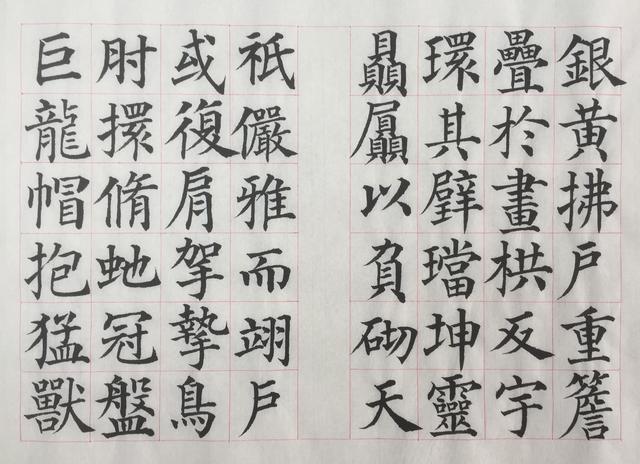 銀黄拂戶重簷
疊於畫栱反宇
環其璧璫坤靈
贔屭以負砌天
祇儼雅而翊戶
或復肩挐摯鳥
肘擐脩虵冠盤
巨龍帽抱猛獸